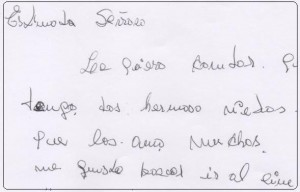 Estimado Señores
Les quiero contar. q
tengo dos hermoso nietos.
que los amo muchos.
me gusta bailar ir al cine